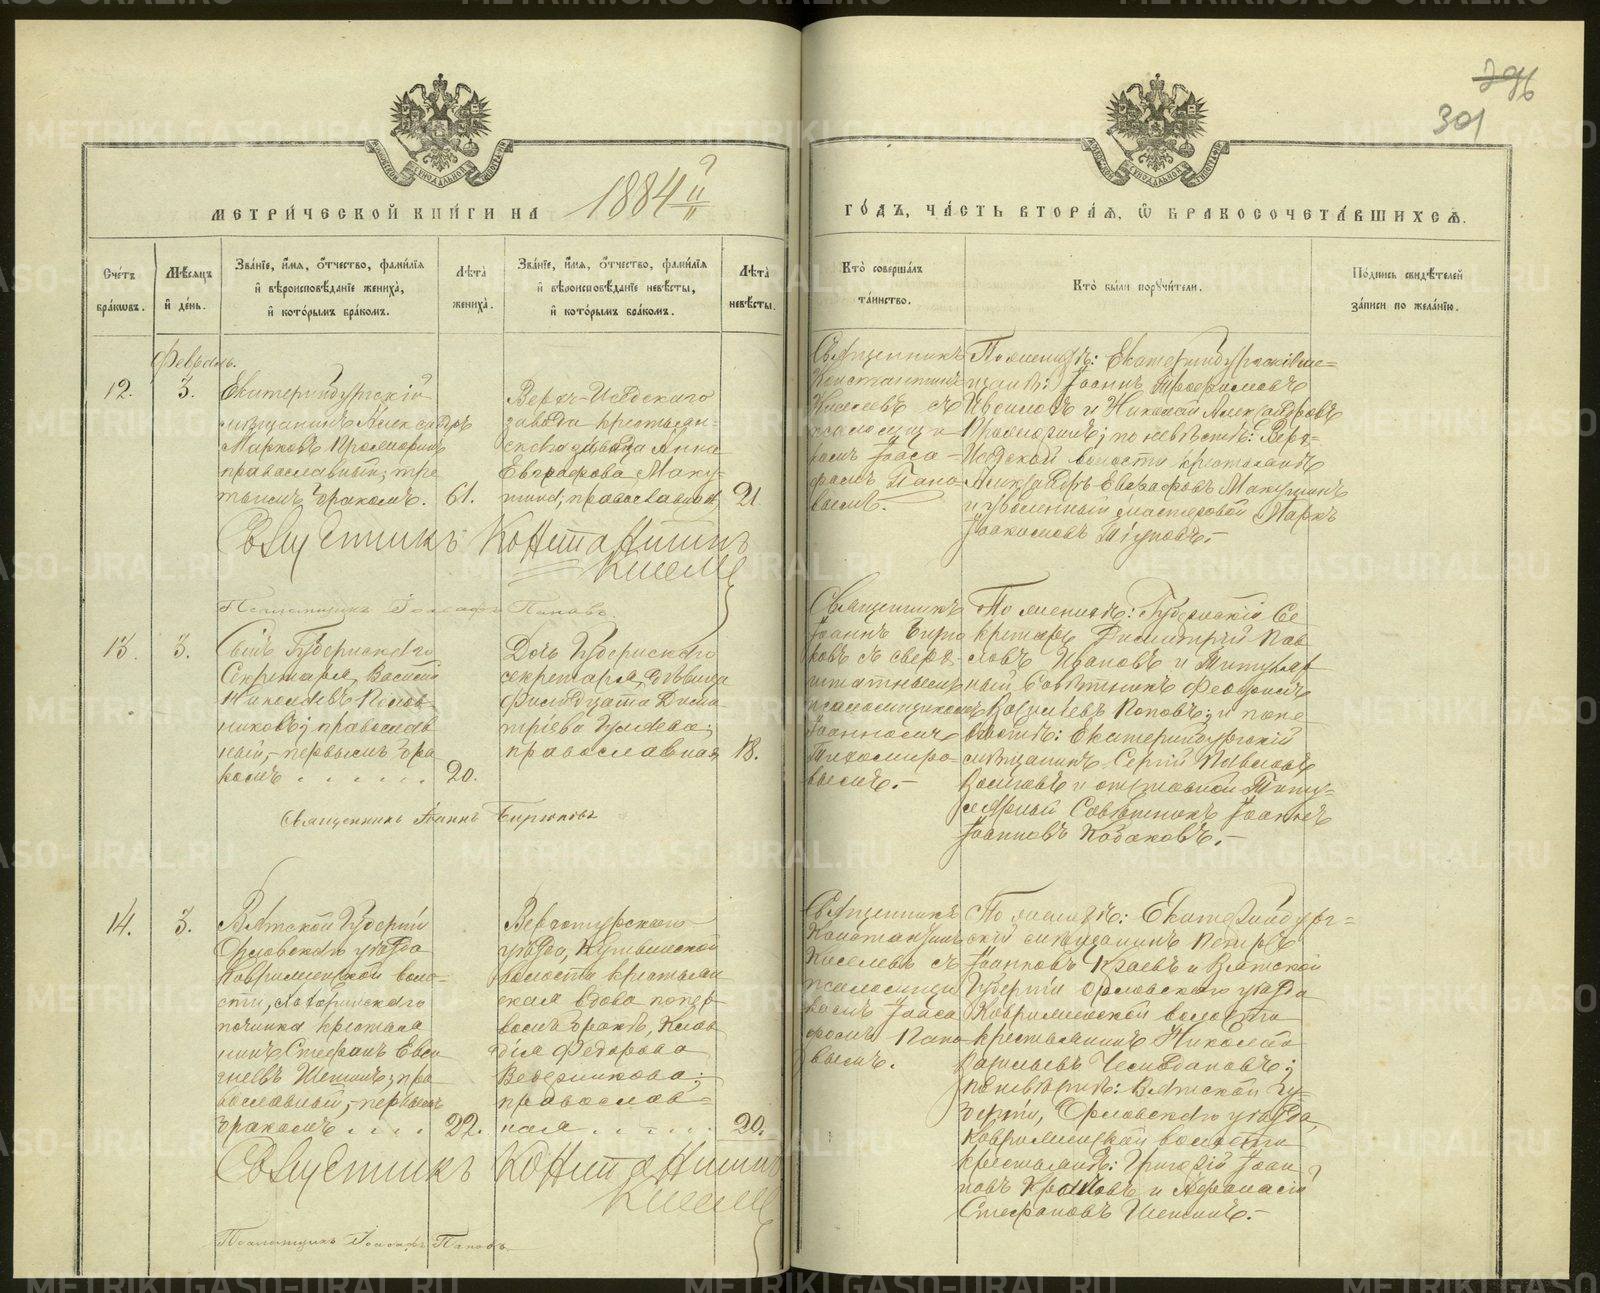 796
301
МЕТРИ́ЧЕСКОЙ КНИ́ГИ НА 1884
ГО́ДЪ, ЧА́СТЬ ВТОРА́Ѧ, Ѽ БРАКОСОЧЕТА́ВШИХСѦ.
Сче́тъ бра́кѡвъ.
Мѣ́сѧцъ и҆ де́нь.
Зва́нїе, и҆́мѧ, ѻ҆́тчество, фами́лїѧ и҆ вѣроисповѣ́данїе жениха̀, и҆ кото́рымъ бра́комъ.
Лѣ́та жениха̀.
Зва́нїе, и҆́мѧ, ѻ҆́тчество, фами́лїѧ и҆ вѣроисповѣ́данїе невѣ́сты, и҆ кото́рымъ бра́комъ.
Лѣ́та невѣ́сты.
Кто̀ соверша́лъ та́инство.
Кто̀ бы́ли порꙋчи́тели.
По́дпись свидѣ́телей за́писи по жела́нїю.
Февраль.
12.
3.
Екатеринбургскій
мѣщанинъ Александръ
Марковъ
православный, тре
тьимъ бракомъ.
61.
Верхъ-Исетскаго
завода крестьян-
ская дѣвица Анна
Евграфова Маку
шина, православная,
21
Священникъ
Константинъ
Киселевъ съ
псаломщи
комъ Іоаса
фомъ Попо
вымъ.
По женихѣ: Екатеринбургскіе мѣ=
щане: Іоаннъ Трофимовъ
и Николай Александровъ
по невѣстѣ: Верх=
Исетской волости крестьянинъ
Александръ Евграфовъ Макушинъ
и уволенный мастеровой Маркъ
Іоакимовъ
Священникъ Константинъ
Киселевъ
Псаломщикъ Іоасафъ Поповъ
13.
3.
Сынъ Губернскаго
Секретаря, Василій
Николаевъ
православ
ный, первымъ бра
комъ
20.
Дочь Губернскаго
секретаря, дѣвица
Фелицата Дими
тріева
православная
18.
Священникъ
Іоаннъ Бирю
ковъ съ сверх
штатнымъ
псаломщикомъ
Іоанномъ
Тихомиро
вымъ.
По женихѣ: Губернскій Се
кретарь Димитрій Пав
ловъ Ивановъ и Титуляр
ный Совѣтникъ
Васильевъ Поповъ; и по не
вѣстѣ: Екатеринбургскій
мѣщанинъ Сергій Павловъ
и отставной Титу=
лярный Совѣтникъ Іоаннъ
Іоанновъ Казаковъ.
Священникъ Іоаннъ Бирюковъ
14.
3.
Вятской Губерніи
Орловскаго уѣзда
воло-
сти,
починка крестья
нинъ Стефанъ Евси
гнеевъ Шешинъ, пра
вославный, первымъ
бракомъ
22.
Верхотурскаго
уѣзда, Кушвинской
волости крестьян
ская вдова по пер
вомъ бракѣ, Клав
дія Федорова
Ведерникова;
православ=
ная
20.
Священникъ
Константинъ
Киселевъ съ
псаломщи
комъ Іоаса
фомъ Попо
вымъ.
По женихѣ: Екатеринбург=
скій мѣщанинъ
Іоанновъ и Вятской
Губерніи Орловскаго уѣзда
волости
крестьянинъ Николай
Васильевъ Чемодановъ;
по невѣстѣ: Вятской Гу=
берніи, Орловскаго уѣзда,
волости
крестьяне: Григорій Іоан
новъ и Афанасій
Стефановъ Шешинъ.
Священникъ Константинъ
Киселевъ
Псаломщикъ Іоасафъ Поповъ
METRIKI.GASO-URAL.RU